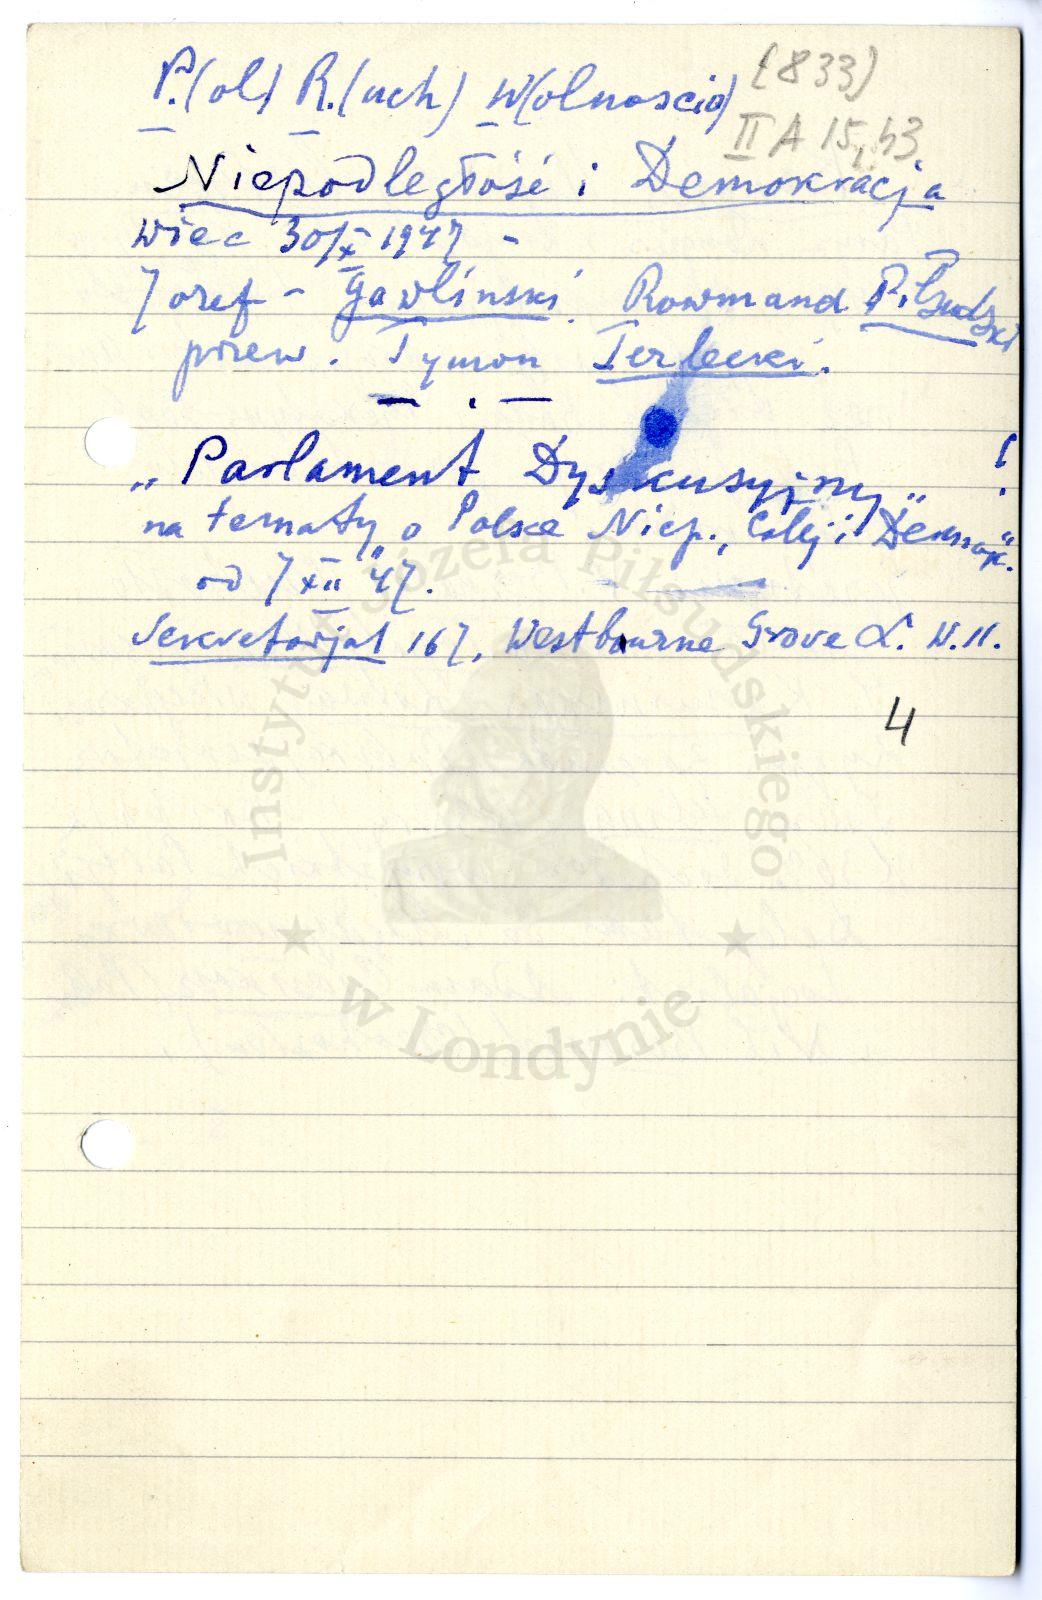 P.(ol) R.(uch) W(olnościo)
(833)
II A 15, 43
Niepodległość i Demokracja
wiec 30/X 1947 -
Józef - Gawliński. Rowmund Piłsudski
przew. Tymon Terlecki.
— . —
„Parlament Dyskusyjny" !
na tematy o Polsce Niep., Całej i Demok."
od 7 XII 47.
Sekretarjat 167, Westbourne Grove L. W. 11.
4
Instytut Józefa Piłsudskiego
w Londynie